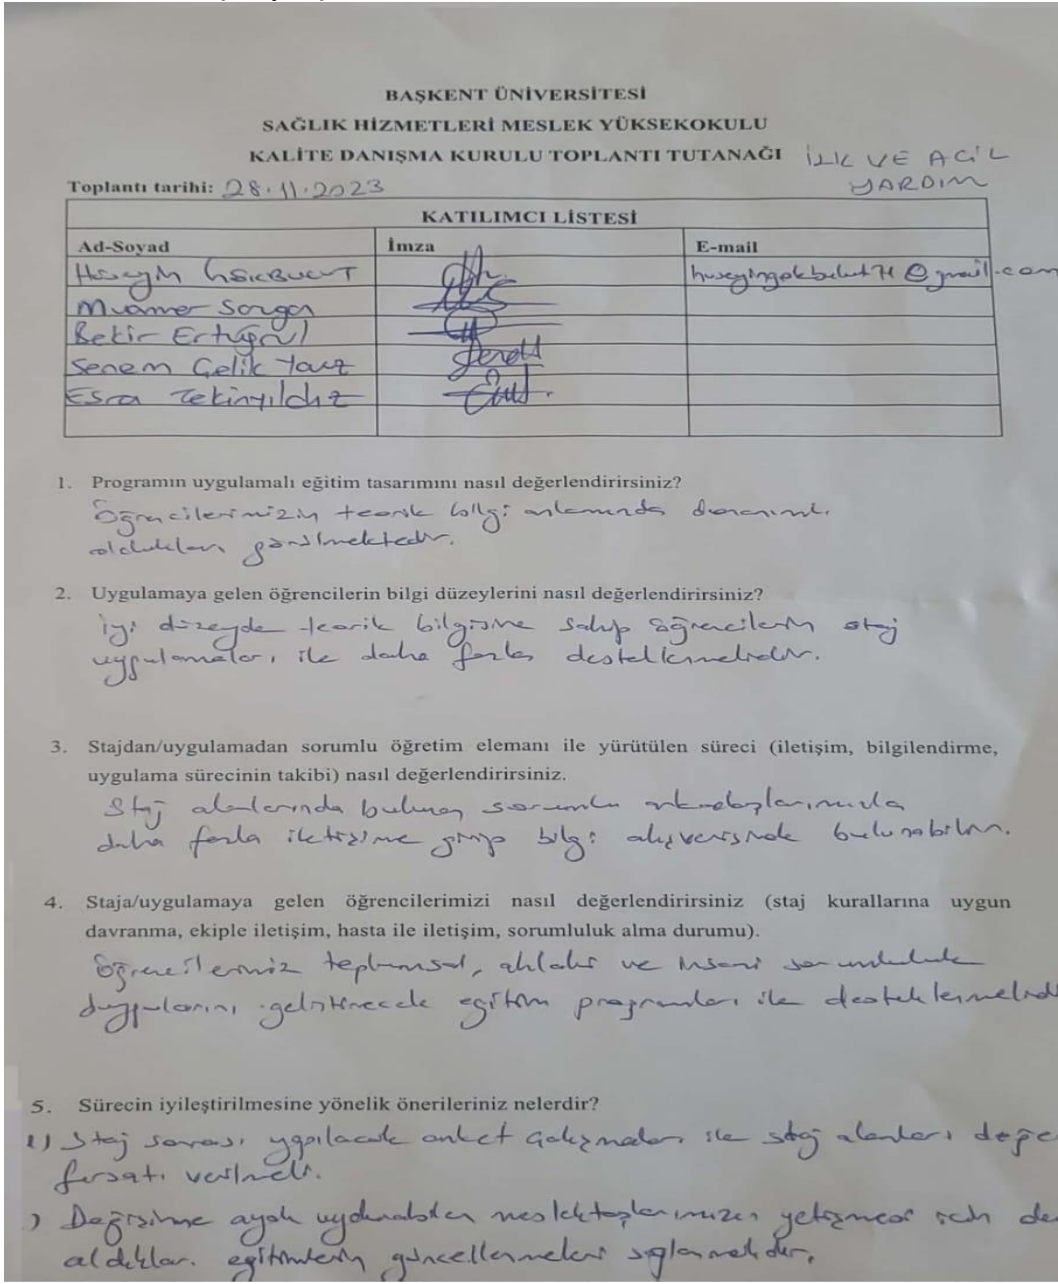 BAŞKENT ÜNİVERSİTESİ
SAĞLIK HİZMETLERİ MESLEK YÜKSEKOKULU
KALİTE DANIŞMA KURULU TOPLANTI TUTANAĞI İLK VE ACİL
YARDIM
Toplantı tarihi: 28.11.2023
KATILIMCI LİSTESİ
Ad-Soyad İmza E-mail
Hüseyin
Bekir Ertuğrul
Senem Çelik
Esra Tekinyıldız
1. Programın uygulamalı eğitim tasarımını nasıl değerlendirirsiniz?
Öğrencilerimizin teorik bilgi anlamında donanımlı
oldukları görülmektedir.
2. Uygulamaya gelen öğrencilerin bilgi düzeylerini nasıl değerlendirirsiniz?
İyi düzeyde teorik bilgisine sahip öğrencilerin staj
uygulamaları ile daha fazla desteklenmelidir.
3. Stajdan/uygulamadan sorumlu öğretim elemanı ile yürütülen süreci (iletişim, bilgilendirme,
uygulama sürecinin takibi) nasıl değerlendirirsiniz.
Staj alanlarında bulunan sorumlu arkadaşlarımızla
daha fazla iletişime girip bilgi alışverişinde bulunabilir.
4. Staja/uygulamaya gelen öğrencilerimizi nasıl değerlendirirsiniz (staj kurallarına uygun
davranma, ekiple iletişim, hasta ile iletişim, sorumluluk alma durumu).
Öğrencilerimiz toplumsal, ahlaki ve insani sorumluluk
duygularını geliştirecek eğitim programları ile
5. Sürecin iyileştirilmesine yönelik önerileriniz nelerdir?
1) Staj sonrası yapılacak anket çalışmaları ile staj alanları
fırsatı verilmeli.
) Değişime ayak uydurabilen meslektaşlarımızın yetişmesi için
aldıkları eğitimlerin güncellenmeleri sağlanmalıdır.